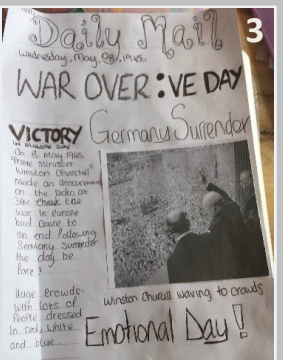 3
Daily Mail
Wednesday, May, 08, 1945.
WAR OVER: VE DAY
VICTORY
IN EUROPE DAY
Germany Surrender
On 8 May 1945
"Prime Minister
Winston Churchill"
Made an announcement
on the radio at
3PM that the
war in Europe
had come to
an end following
Germany surrender
the day be
fore!
Huge crowds-
with lots of
People dressed
In red, white
and blue.
Winston Churcill waving to crowds
Emotional Day!